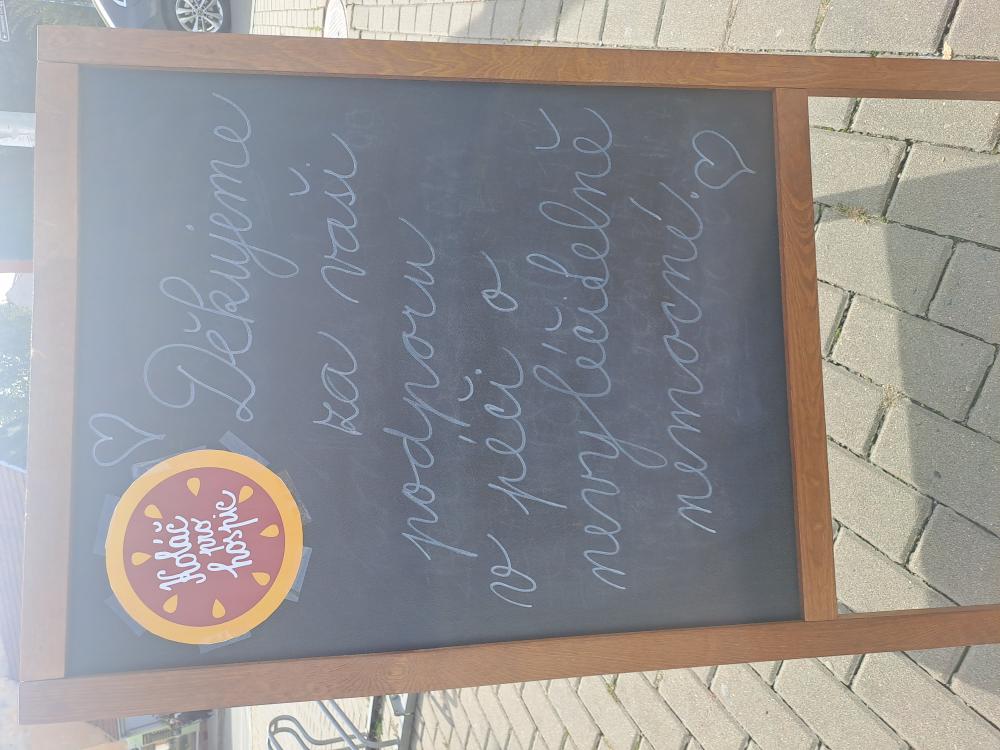 Koláč
pro
hospic
Děkujeme
za vaši
podporu
v péči o
nevyléčitelně
nemocné.